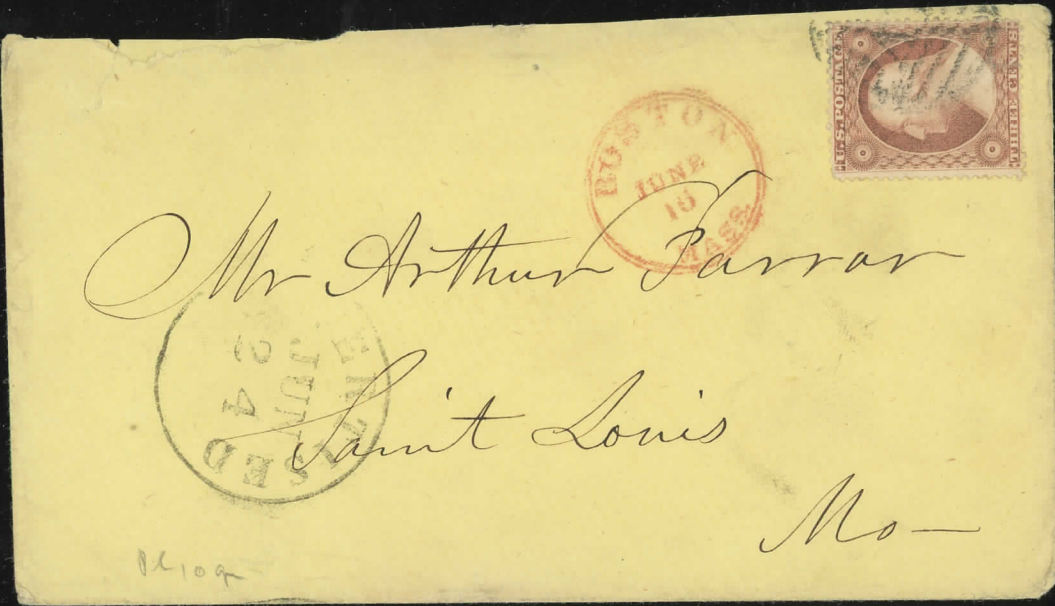 U.S. POSTAGE
THREE CENTS
BOSTON
JUNE
10
MASS.
Mr Arthur Farrar
Saint Louis
Mo—
JUN
24